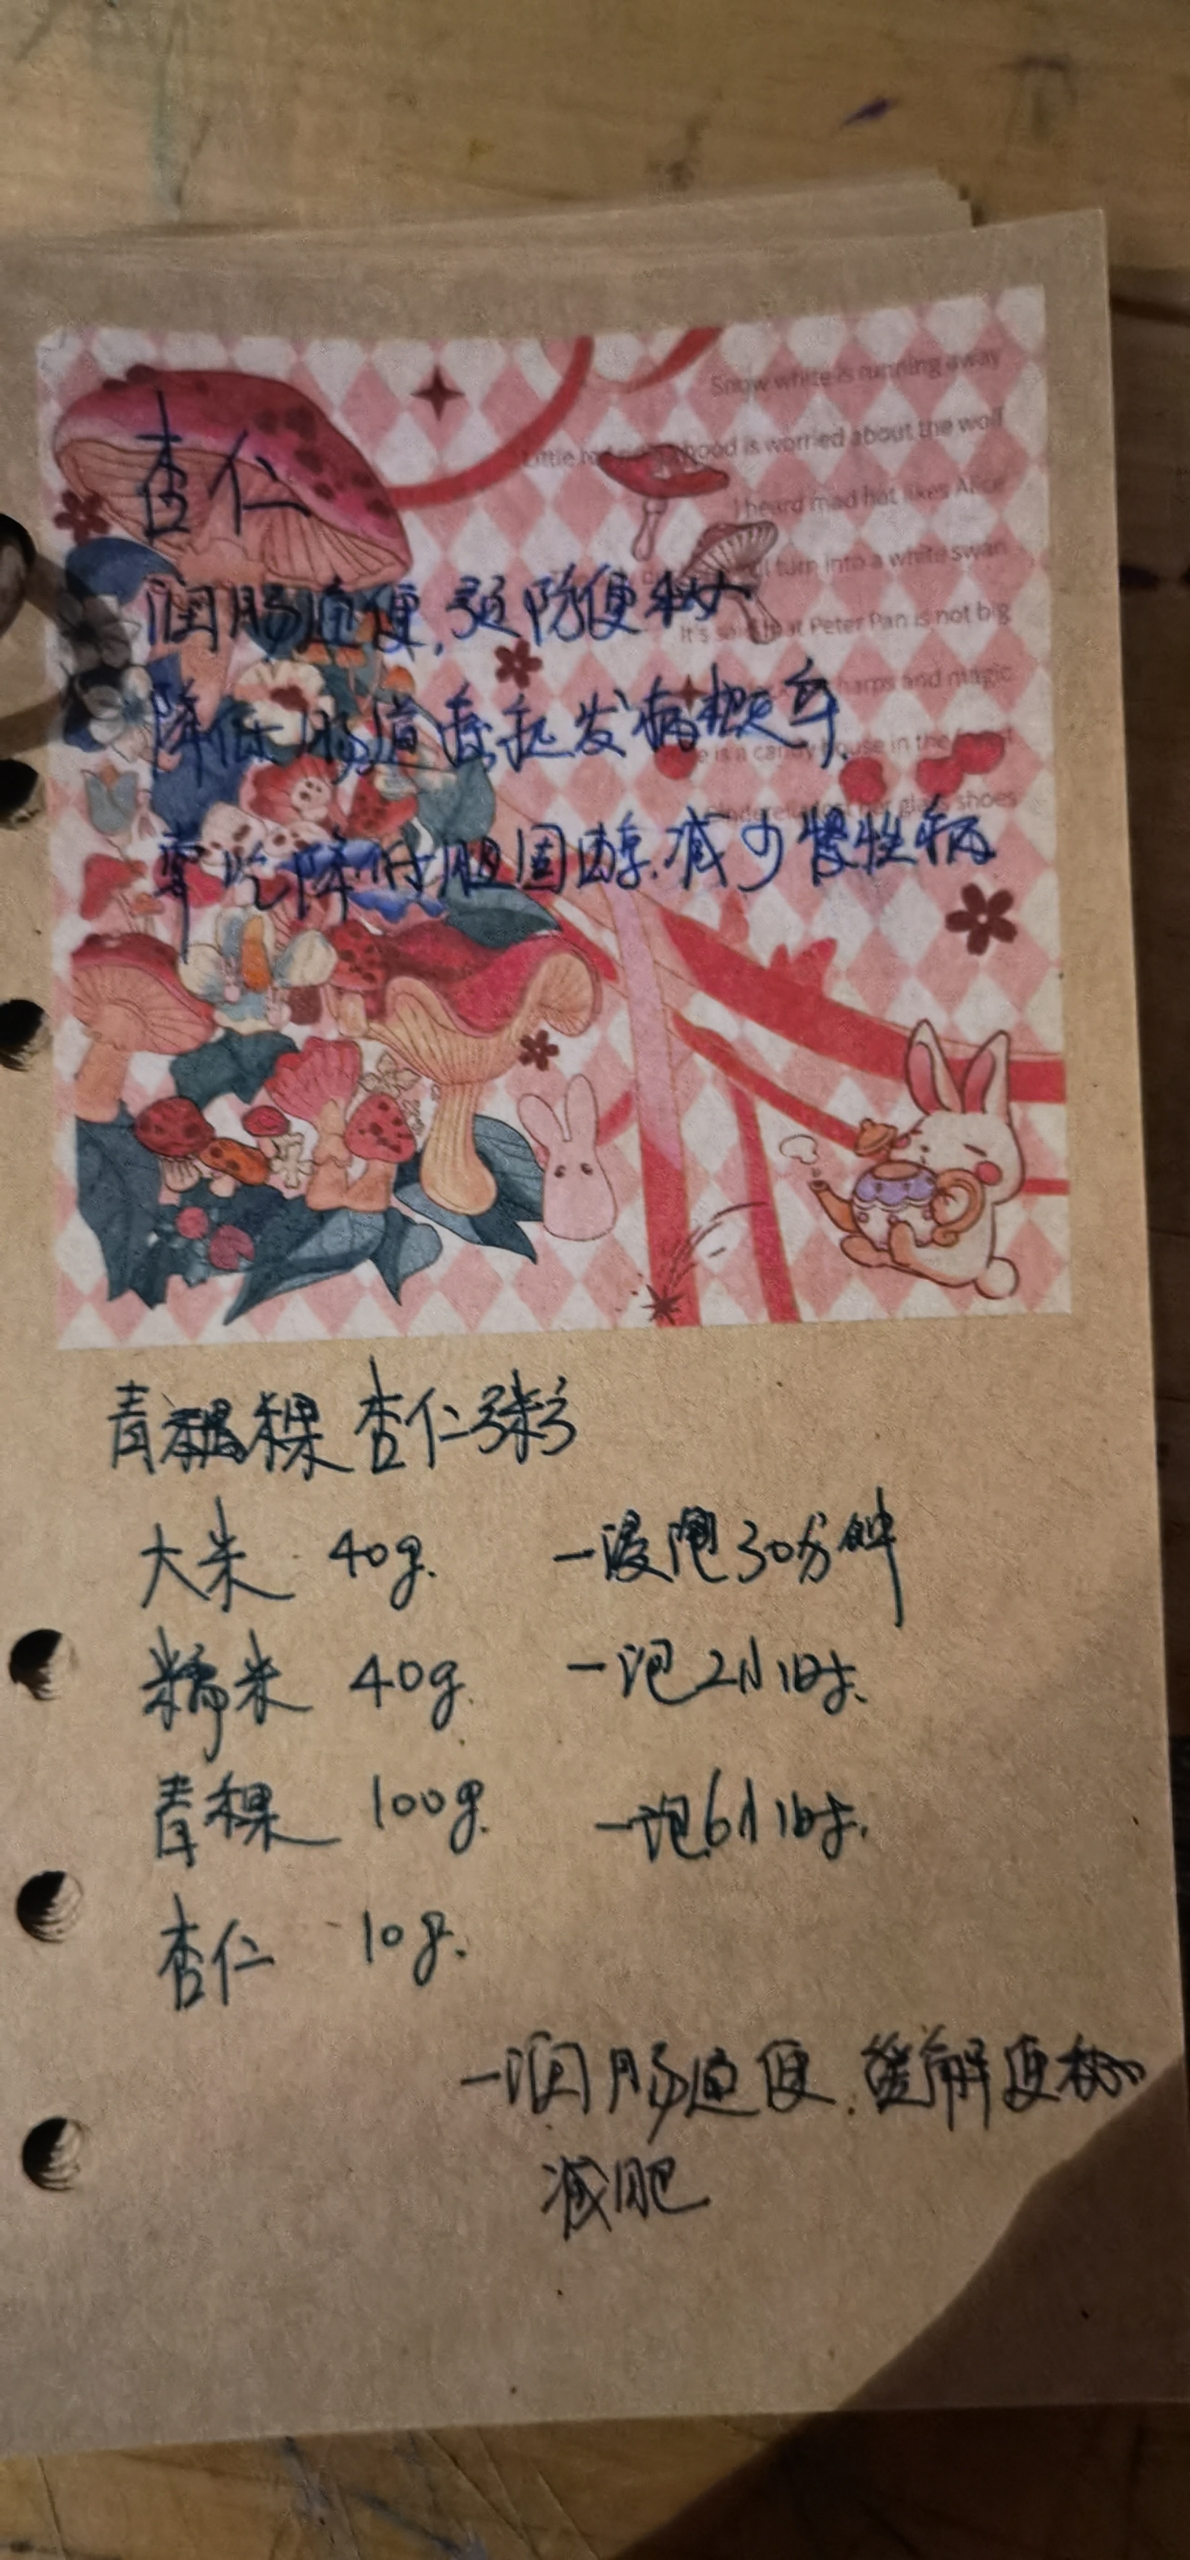 Snow white is running away
Little red hood is worried about the wolf
I heard mad hat likes Alice
turn into a white swan
It's said that Peter Pan is not big
harps and magic
is a candy house in the
glass shoes
杏仁
润肠通便,预防便秘
降低肠道息肉发病概率.
常吃降低胆固醇.减少慢性病
青稞杏仁粥
大米 40g. —浸泡30分钟
糯米 40g. —泡2小时.
青稞 100g. —泡6小时.
杏仁 10g.
—润肠通便.缓解便秘
减肥